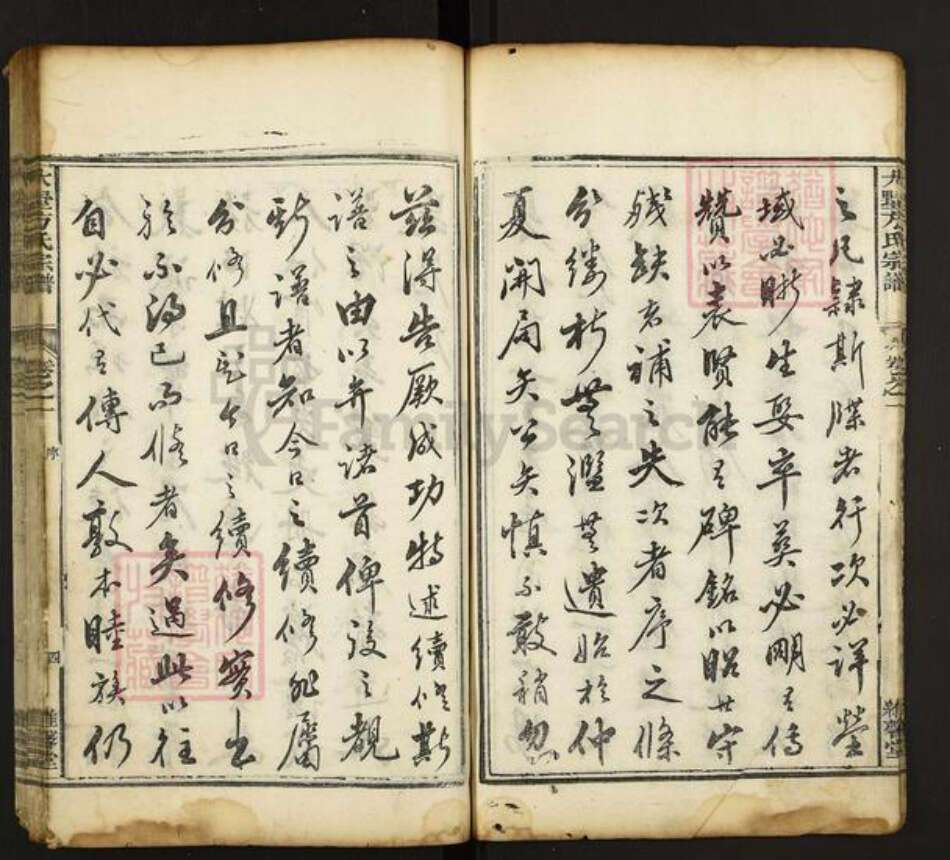 之凡隸斯牒者行次必詳塋
域必晰生娶卒葬必明有傳
贊以表賢能有碑銘以昭世守
殘缺者補之失次者序之條
分縷析無濫無遺始於仲
夏開局矢公矢慎不敢稍忽
茲得告厥成功特述續修斯
譜之由以弁諸首俾後之覩
斯譜者知今日之續修非屬
分修且知今日之續修實出
於不得已而修者矣過此以往
自必代有傳人敦本睦族仍
方氏宗譜
卷之一
序
四
方氏宗譜
卷之一
FamilySearch